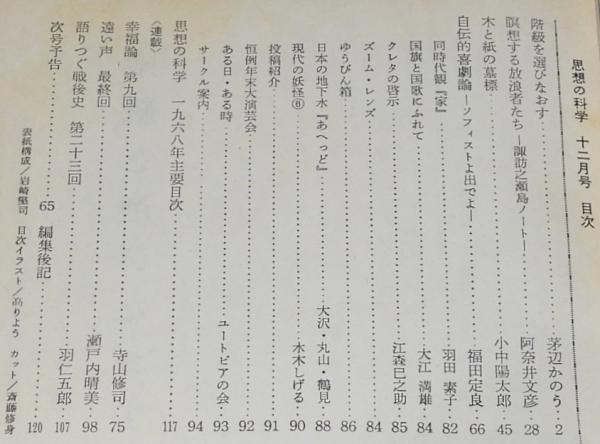 思想の科学 十二月号 目次
階級を選びなおす 茅辺かのう 2
瞑想する放浪者たち ―諏訪之瀬島ノート― 阿奈井文彦 28
木と紙の墓標 小中陽太郎 45
自伝的喜劇論 ―ソフィストよ出でよ― 福田定良 66
同時代観『家』 羽田素子 82
国旗と国歌にふれて 大江満雄 84
クレタの啓示 江森巳之助 85
ズーム・レンズ 84
ゆうびん箱 86
日本の地下水『あへっど』 大沢・丸山・鶴見 88
現代の妖怪⑥ 水木しげる 90
投稿紹介 91
恒例年末大演芸会 92
ある日・ある時 ユートピアの会 93
サークル案内 94
思想の科学 一九六八年主要目次 117
〈連載〉
幸福論 第九回 寺山修司 75
遠い声 最終回 瀬戸内晴美 98
語りつぐ戦後史 第二十三回 羽仁五郎 107
次号予告 65 編集後記 120
表紙構成/岩崎堅司 目次イラスト/高りよう カット/斎藤修身